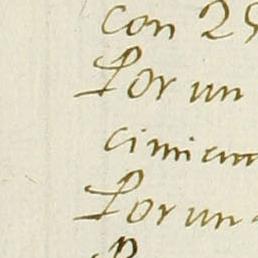 con 25
Por un
cimien
Por un